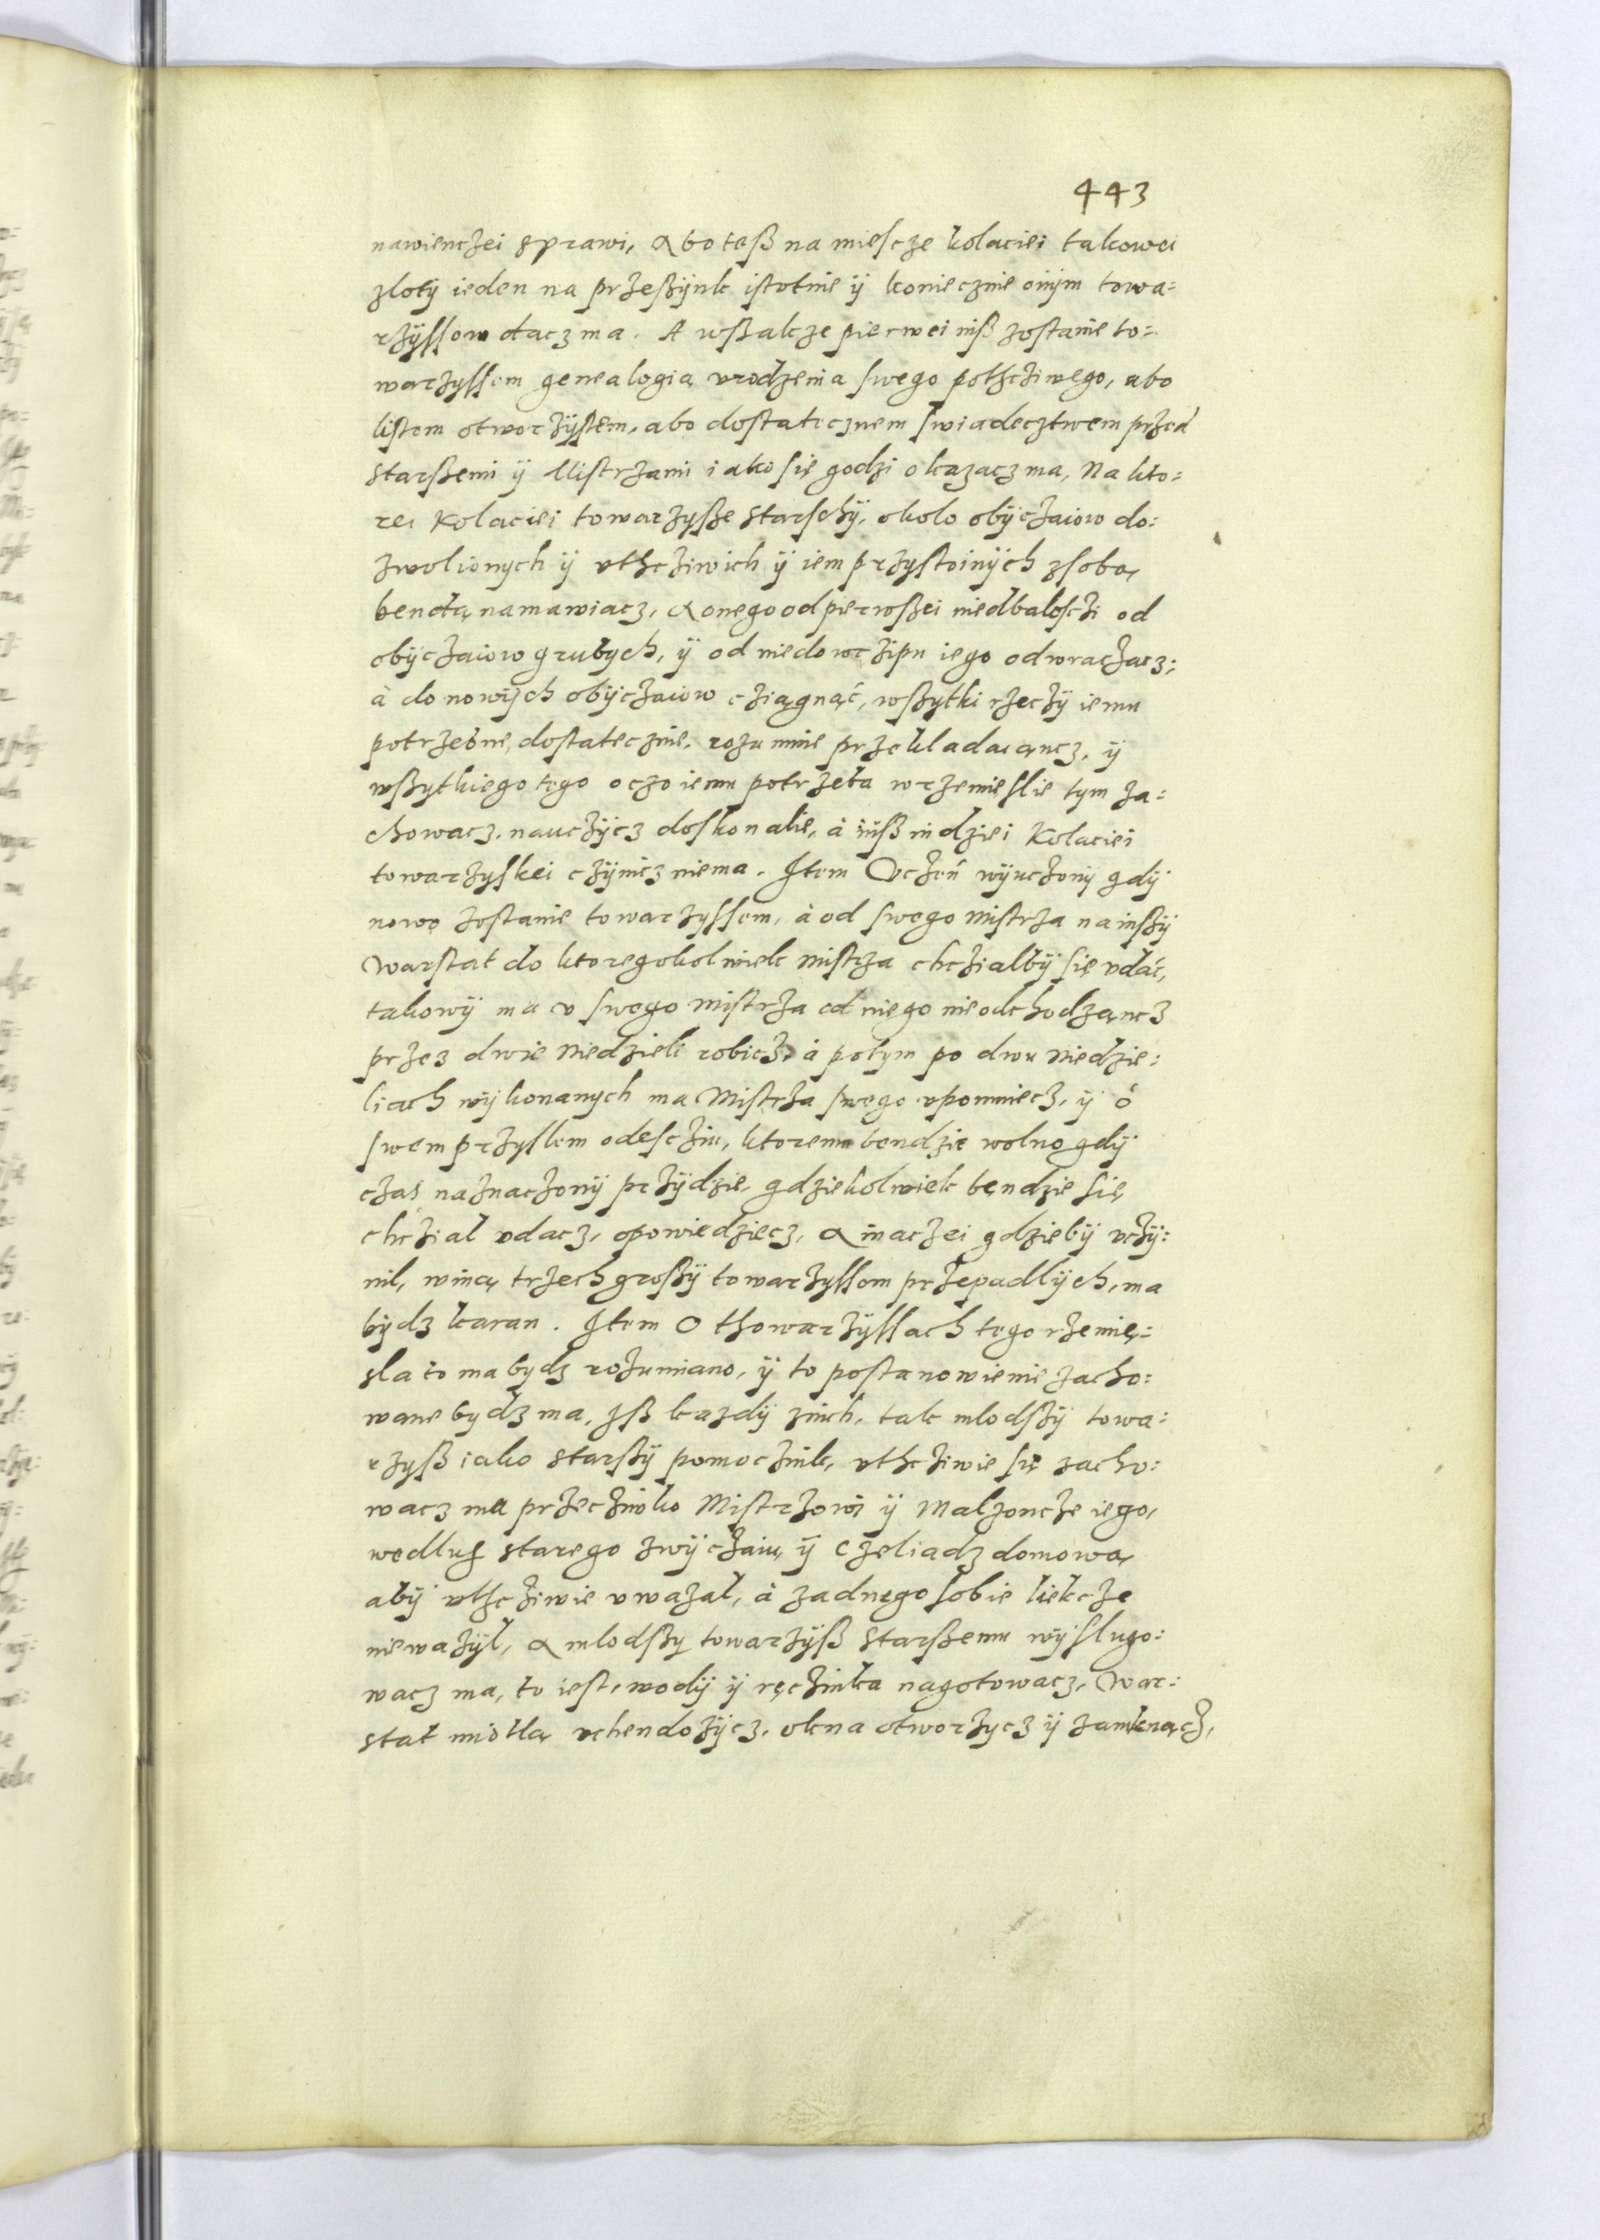 443
nawienczei sprawi, Abo teß na miescze kolaciei takowei
zloty ieden na przeßÿnk istotnie ÿ koniecznie onÿm towa=
rzÿssom dacz ma. A wßakze pierwei niß zostanie to=
warzyssem genealogią vrodzenia swego potscziwego, abo
listem otworzÿstem, abo dostatecznem swiadecztwem przed
starßemi ÿ Mistrzami iako się godzi okazacz ma, Na kto=
rei Kolaciei towarzyße starschÿ, okolo obÿczaiow do=
zwolionych ÿ vthcziwich ÿ iem przystoinÿch zsobą
bendą namawiacz, A onego od pierwßei niedbalosczi od
obÿczaiow grubych, ÿ od niedowczipu iego odwraczacz;
à do nowÿch obÿczaiow cziągnąć, wßytki rzeczÿ iemu
potrzebne, dostatecznie, rozumnie przekladaiąncz, ÿ
wßytkiego tego oczo iemu potrzeba wrzemieslie tym za=
chowacz, nauczÿcz doskonalie, à iuß indziei Kolaciei
towarzyskei czÿnicz niema. Item Vczeń wÿuczonÿ gdÿ
nowo zostanie towarzyssem, à od swego mistrza na inßÿ
Warstat do ktoregokolwiek mistrza chczialbÿ się vdać,
takowÿ ma v swego mistrza od niego nieodchodząncz
przez dwie niedzieli robicz, à potym po dwu niedzie=
liach wÿkonanych ma Mistrza swego vpomniecz, ÿ ò
swem przyslem odesciu, ktoremu bendzie wolno gdÿ
czas naznaczonÿ przÿdzie, gdziekolwiek bęndzie się
chczial vdacz, opowiedziecz, A inaczei gdziebÿ vczÿ=
nil, winą trzech großÿ towarzyssom przepadlÿch, ma
bÿdz karan. Item O thowarzÿssach tego rzemię=
sla to ma bydz rozumiano, ÿ to postanowienie zacho=
wane bydz ma, Iß kazdÿ znich, tak mlodßÿ towa=
rzyß iako starßÿ pomocznik, vthcziwie się zacho=
wacz ma przecziwko Mistrzowi ÿ Malzoncze iego,
wedlug starego zwÿczaiu, ÿ Czeliadz domową
abÿ vthcziwie vwazal, à zadnego sobie liekcze
niewazÿl, A mlodßy towarzÿß starßemu wÿslugo=
wacz ma, to iest, wodÿ ÿ ręcznika nagotowacz, War=
stat miotlą vchendozÿcz, okna otworzycz ÿ zamknącz,